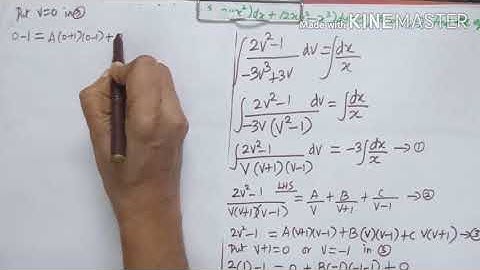 Put v=0 in ③
0-1 = A(0+1)(0-1)+
Made with KINEMASTER
∫ 2v²-1 / -3v³+3v dv = ∫ dx/x
∫ 2v²-1 / -3v(v²-1) dv = ∫ dx/x
∫ 2v²-1 / v(v+1)(v-1) = -3∫ dx/x → ①
2v²-1 / v(v+1)(v-1) LHS = A/v + B/v+1 + C/v-1 → ②
2v²-1 = A(v+1)(v-1)+B(v)(v-1)+C v(v+1) → ③
Put v+1=0 or v=-1 in ③
2(1)-1 = 0 + B(-1)(-1-1) + 0